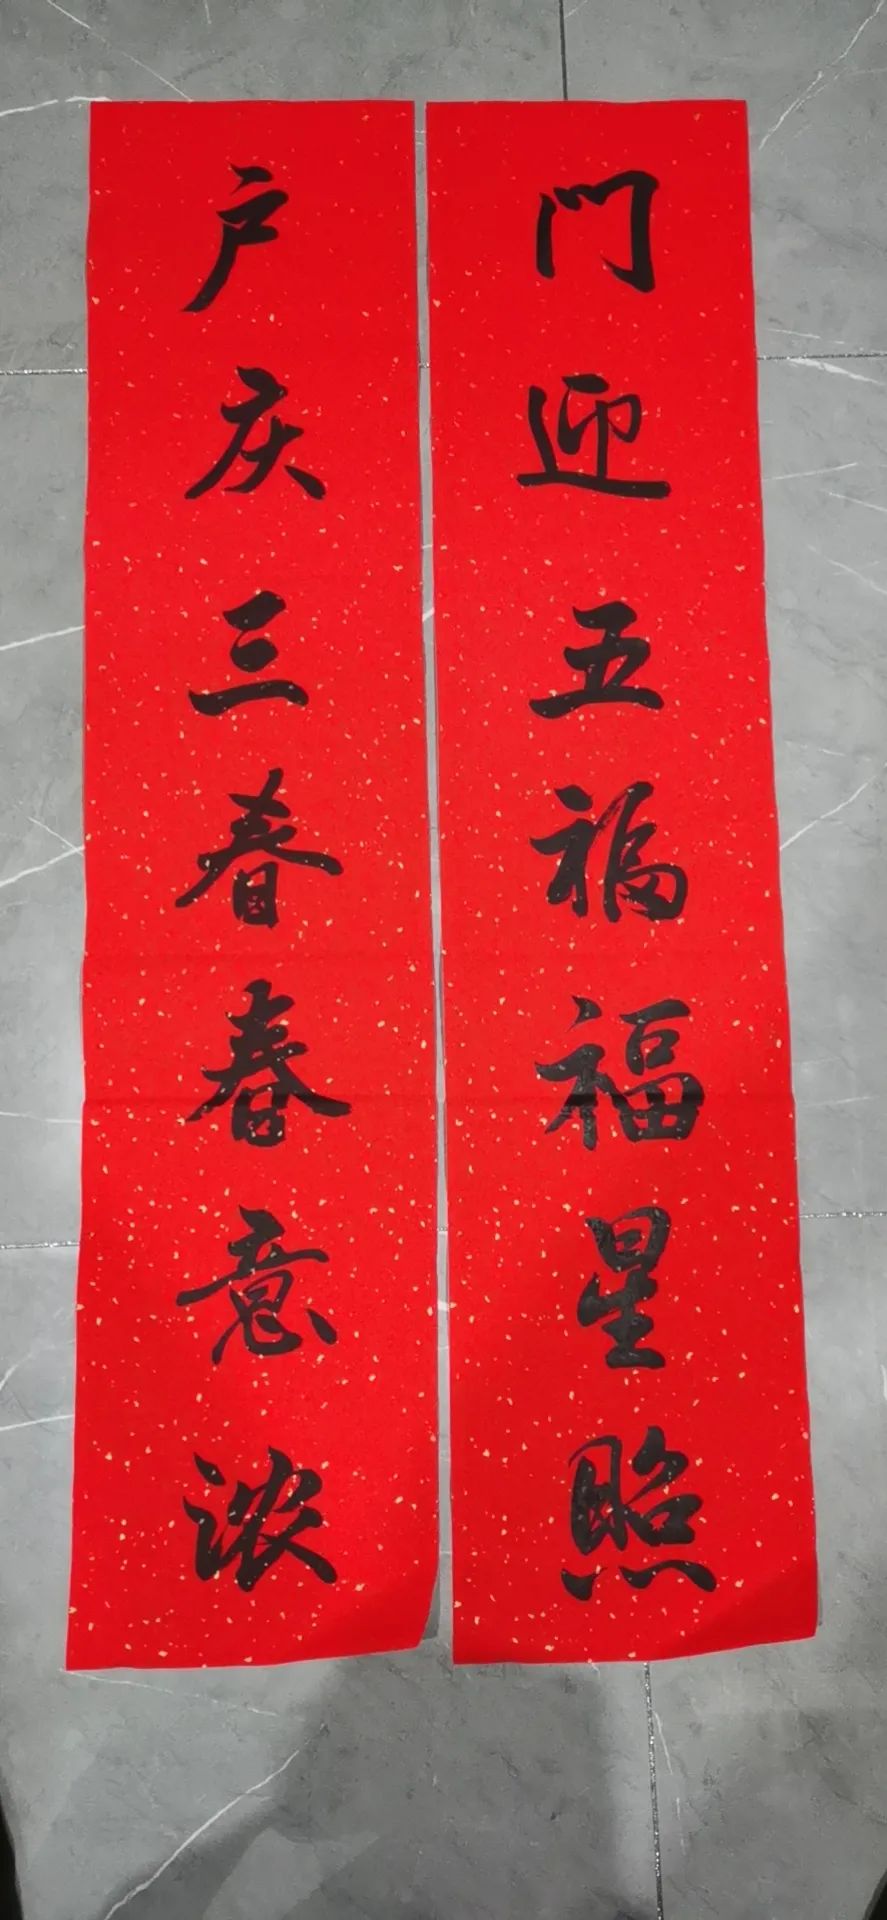 門迎五福福星照
户庆三春春意浓